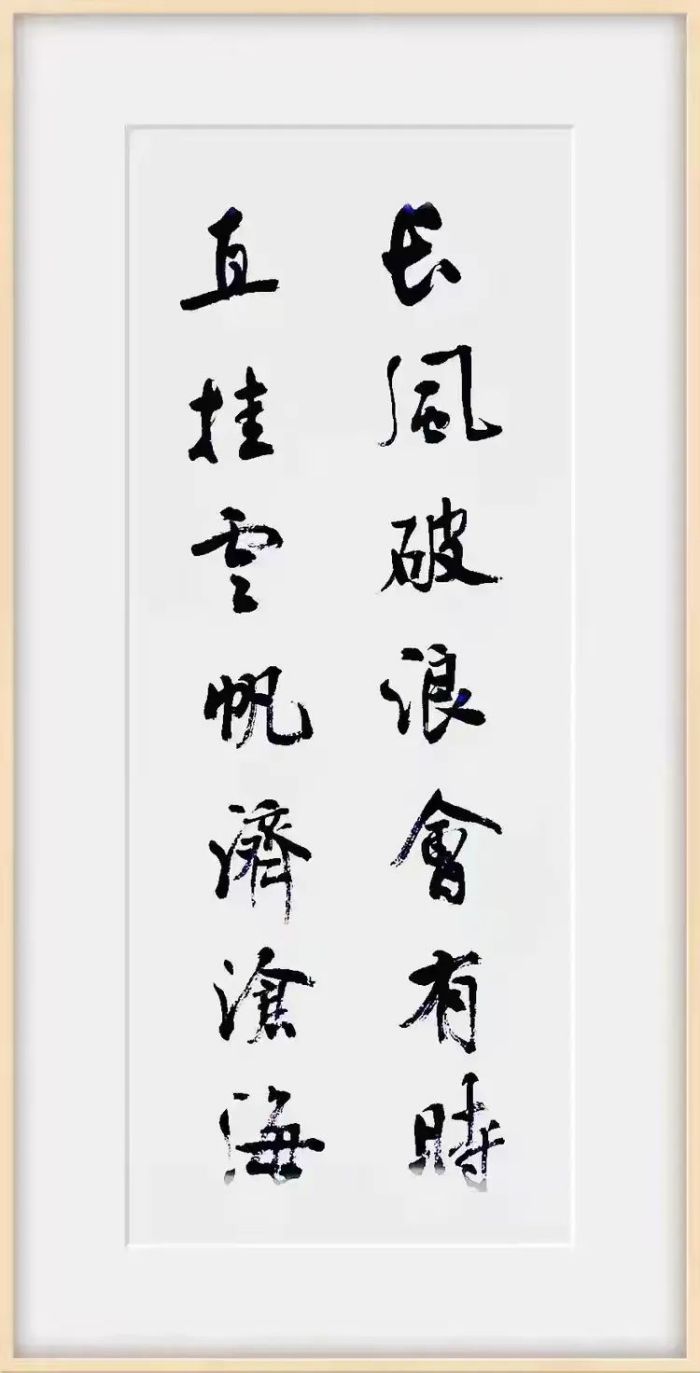 長風破浪會有時
直挂雲帆濟滄海